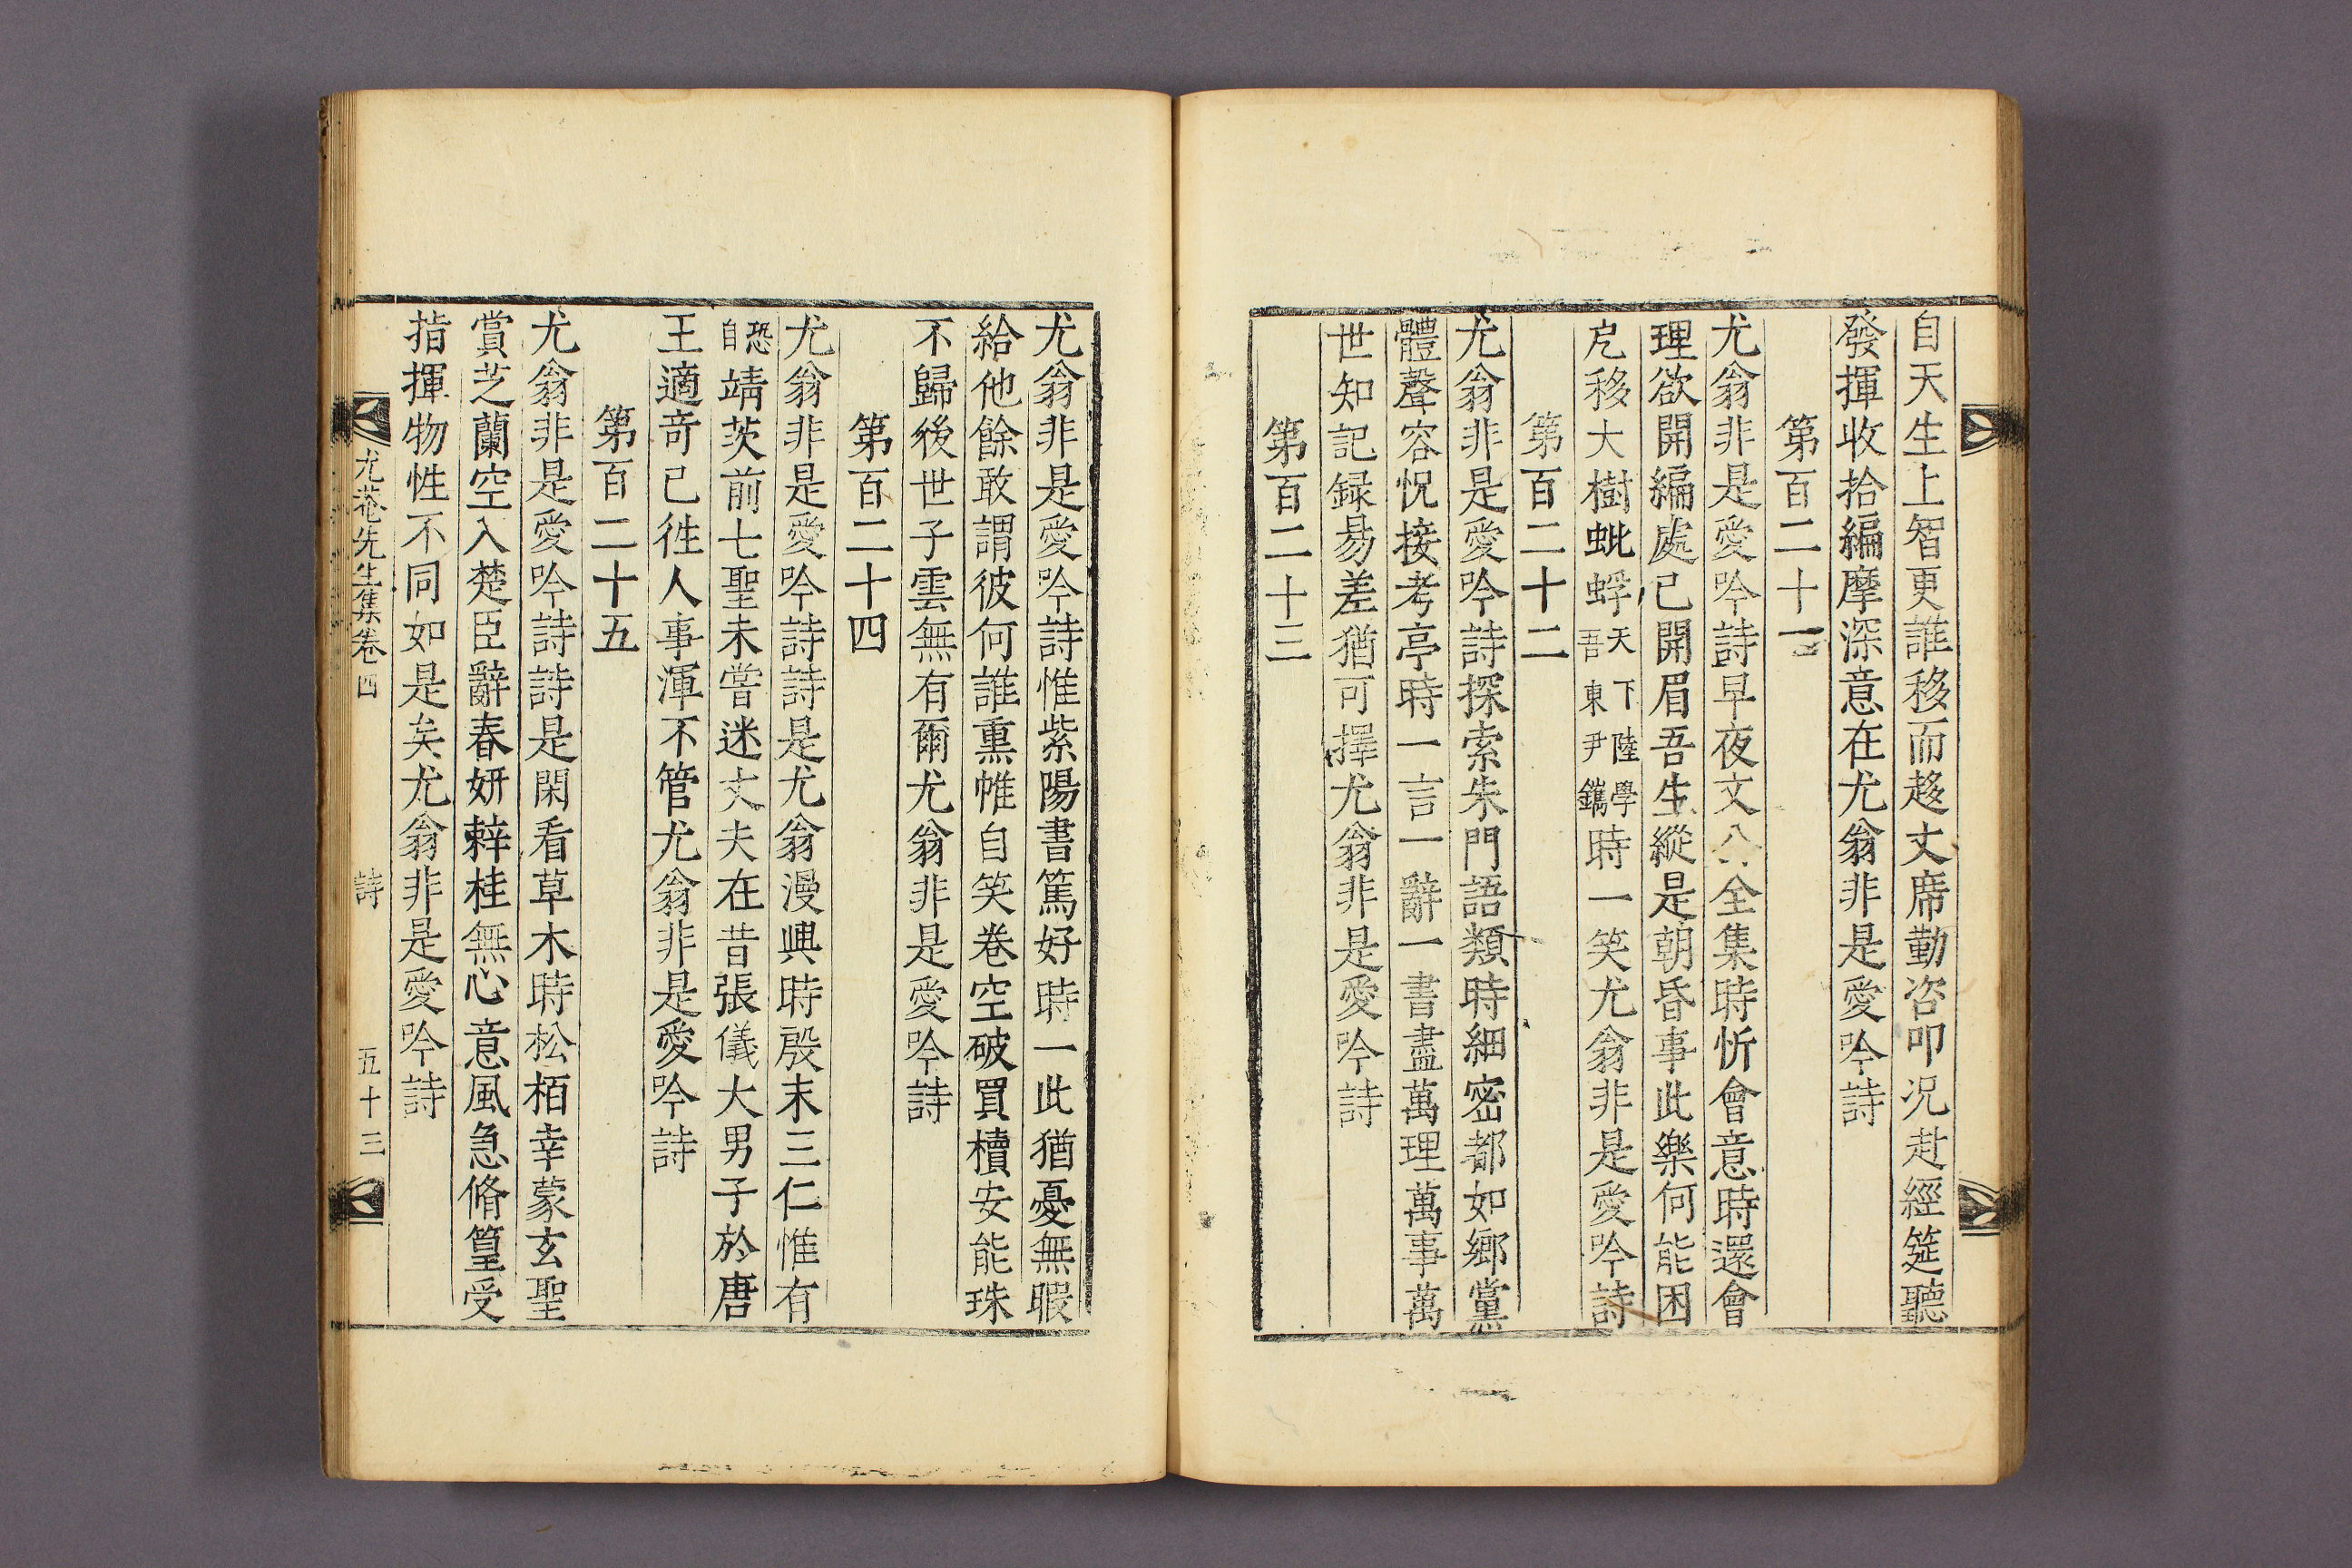 自天生上智更誰移而趍丈席勤咨叩况赴經筵聽
發揮收拾編摩深意在尤翁非是愛吟詩
第百二十一
尤翁非是愛吟詩早夜文公全集時忻會意時還會
理欲開編處已開眉吾生縱是朝昏事此樂何能困
厄移大樹蚍蜉天下陸學吾東尹鑴時一笑尤翁非是愛吟詩
第百二十二
尤翁非是愛吟詩探索朱門語類時細密都如鄉黨
體聲容怳接考亭時一言一辭一書盡萬理萬事萬
世知記録昜差猶可擇尤翁非是愛吟詩
第百二十三
尤翁非是愛吟詩惟紫陽書篤好時一此猶憂無暇
給他餘敢謂彼何誰熏帷自笑巻空破買櫝安能珠
不歸後世子雲無有爾尤翁非是愛吟詩
第百二十四
尤翁非是愛吟詩詩是尤翁漫興時殷末三仁惟有
恐自靖茨前七聖未嘗迷丈夫在昔張儀大男子於唐
王適奇已徃人事渾不管尤翁非是愛吟詩
第百二十五
尤翁非是愛吟詩詩是閑看草木時松栢幸蒙玄聖
賞芝蘭空入楚臣辭春妍辢桂無心意風急脩篁受
指揮物性不同如是矣尤翁非是愛吟詩
尤菴先生集卷四 詩 五十三